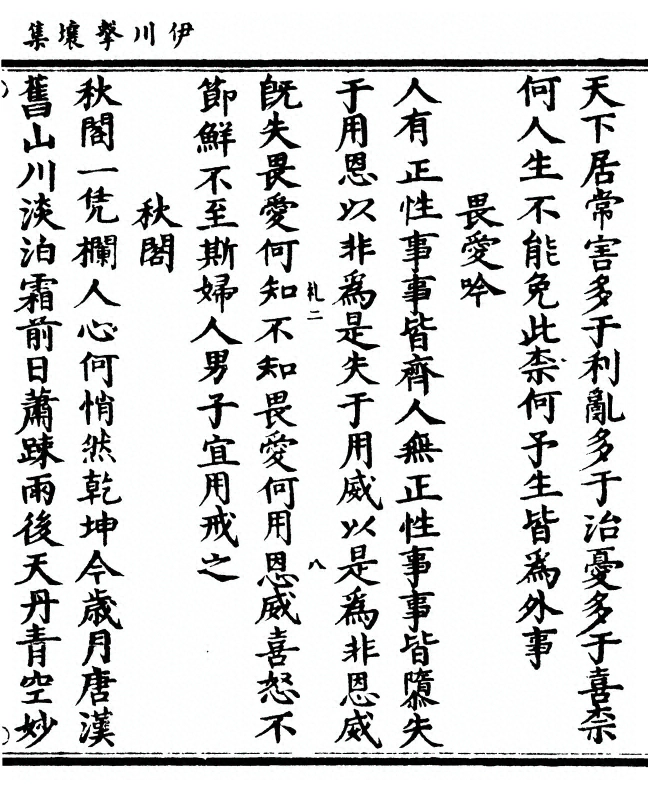 伊川擊壤集
天下居常害多于利亂多于治憂多于喜柰
何人生不能免此柰何予生皆爲外事
畏愛吟
人有正性事事皆齊人無正性事事皆隳失
于用恩以非爲是失于用威以是爲非恩威
札二
八
旣失畏愛何知不知畏愛何用恩威喜怒不
節鮮不至斯婦人男子宜用戒之
秋閣
秋閣一凭欄人心何悄然乾坤今歲月唐漢
舊山川淡泊霜前日蕭踈雨後天丹青空妙